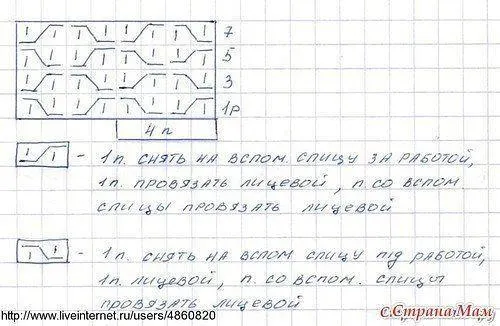 7
5
3
1р
4 п
- 1п. снять на вспом. спицу за работой,
1п. провязать лицевой, п. со вспом.
спицы провязать лицевой
- 1п. снять на вспом. спицу під работой,
1п. лицевой, п. со вспом. спицы
провязать лицевой
http://www.liveinternet.ru/users/4860820
с.Страна Мам